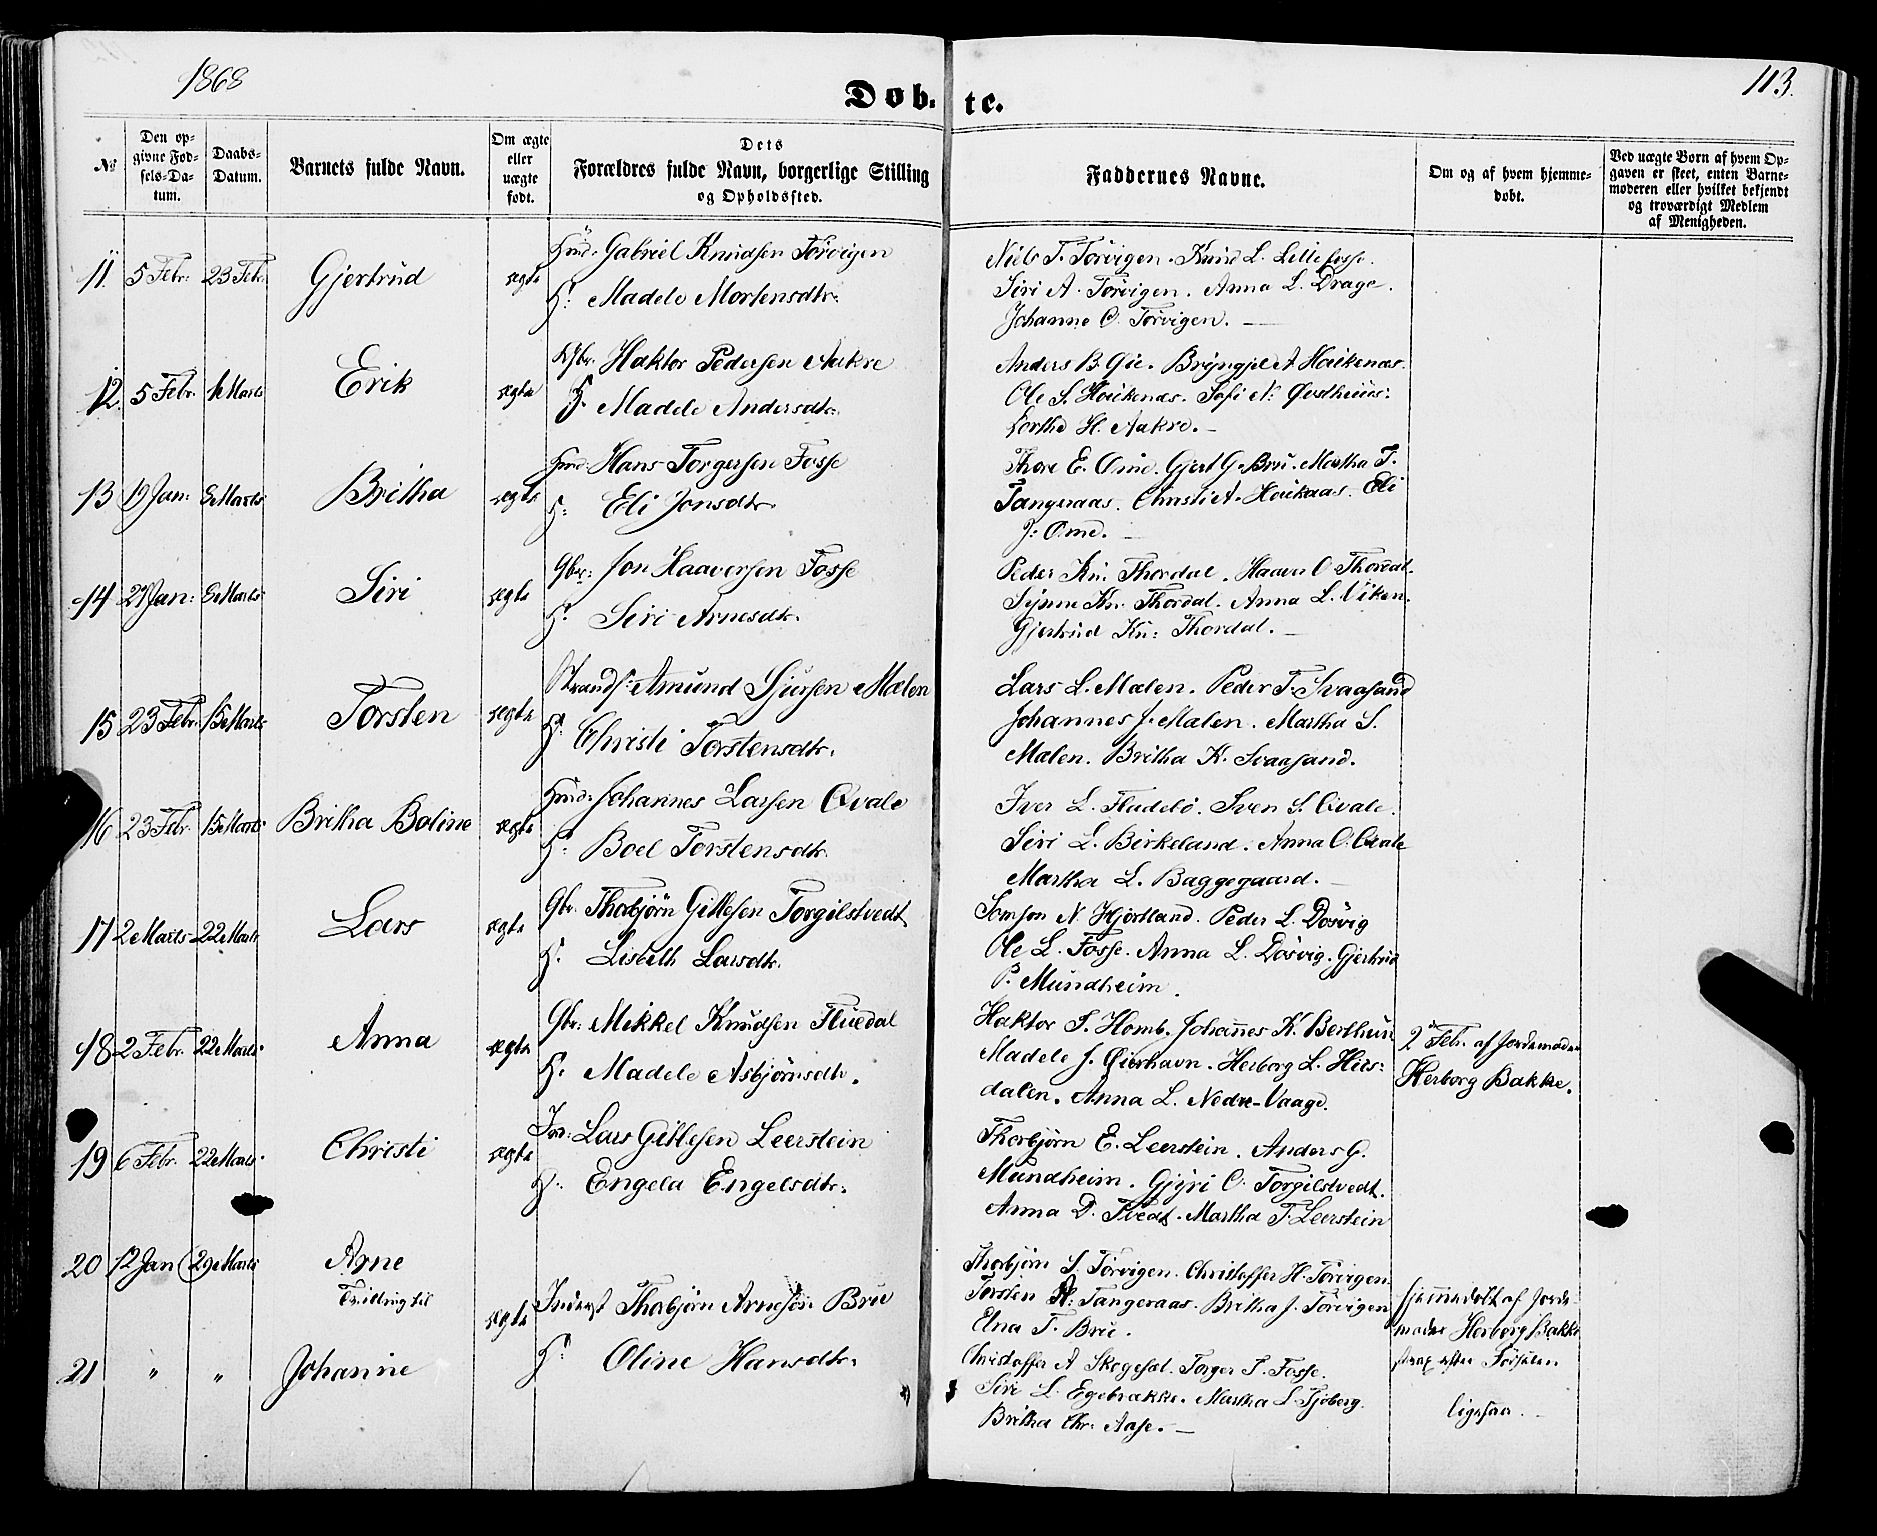 1868
113.
Döb. te.
№
Den op-
givne Fød-
sels-Da-
tum.
Daabs-
Datum.
Barnets fulde Navn.
Om ægte
eller
uægte
født.
Dets
Forældres fulde Navn, borgerlige Stilling
og Opholdssted.
Faddernes Navne.
Om og af hvem hjemme-
døbt.
Ved uægte Børn af hvem Op-
gaven er skeet, enten Barne-
moderen eller hvilket bekjendt
og troværdigt Medlem
af Menigheden.
11. 5 Febr: 23 Feb: Gjertrud ægte
Huusm: Gabriel Knudsen Tørvigen
H: Madele Mortensdtr:
Niels T. Tørvigen. Knud L. Lillefosse.
Siri A. Tørvigen. Anna L. Drage.
Johanne O. Tørvigen. —
12. 5 Febr. 1 Marts Erik ægte
Gbr. Haktor Pedersen Aakre
H. Madele Andersdtr:
Anders B. Øie. Bryngjel A Hoikenæs.
Ole S. Hoikenæs. Sofi N: Østheims:
Dorthe H. Aakre. —
13 19 Jan: 8 Marts Britha ægte
Huusm: Hans Torgersen Fosse
H: Eli Jonsdtr.
Thore E. Ome. Gjert G. Bru. Martha T.
Tangeraas. Christi A. Hoikaas. Eli
J: Ome. —
14 27 Jan: 8 Marts Siri ægte
Gbr: Jon Haaversen Fosse
H: Siri Arnesdtr.
Peder Kn: Thordal. Haaver O. Thordal.
Synne Kn. Thordal. Anna L. Viken.
Gjertrud Kn: Thordal. —
15 23 Febr. 15 Marts Torsten ægte
Strands: Amund Sjursen Mælen
H: Christi Torstensdtr.
Lars L. Mælen. Peder T. Svaasand
Johannes J. Mælen. Martha S.
Mælen. Britha K. Svaasand.
16 23 Febr. 15 Marts Britha Boline ægte
Huusm: Johannes Larsen Qvale
H: Boel Torstensdtr.
Iver L. Fladebø. Sven S. Qvale.
Siri L. Birkeland. Anna O. Qvale
Martha L. Baggegaard. —
17 2 Marts 22 Marts Lars ægte
Gbr. Thorbjørn Gitlesen Torgilstvedt
H. Lisbeth Larsdtr.
Samson N. Hjortland. Peder L. Døsvig
Ole L. Fosse. Anna L. Døsvig. Gjertrud
P. Mundheim.
18 2 Febr. 22 Marts Anna ægte
Gbr: Mikkel Knudsen Fluedal
H. Madele Asbjørnsdtr.
Haktor S. Homb. Johannes K. Berthun
Madele J. Øierhavn. Herborg L. Hies:
dalen. Anna L. Nedre-Vaage.
2 Febr. af Jordemoder
Herborg Bakke.
19 6 Febr. 22 Marts Christi ægte
Ind: Lars Gitlesen Leerstein
H. Engela Engelsdtr.
Thorbjørn E. Leerstein. Anders G.
Mundheim. Gjyri O. Torgilstvedt.
Anna D. Tvedt. Martha T. Leerstein
20 12 Jan 29 Marts Arne
Tvilling til
ægte
Inderst Thorbjørn Arnesen Bru
H: Oline Hansdtr.
Thorbjørn S. Tørvigen. Christoffer H. Tørvigen
Torsten A: Tangeraas. Britha J. Tørvigen
Elna T. Bru.
hjemmedøbt af Jorde-
moder Herborg Bakke
strax efter Førselen
21 " " Johanne
Christoffer A Skogesel. Torger T. Fosse.
Siri L. Egebrakke. Martha L. Fjøberg.
Britha Chr. Aase. —
ligesaa. —